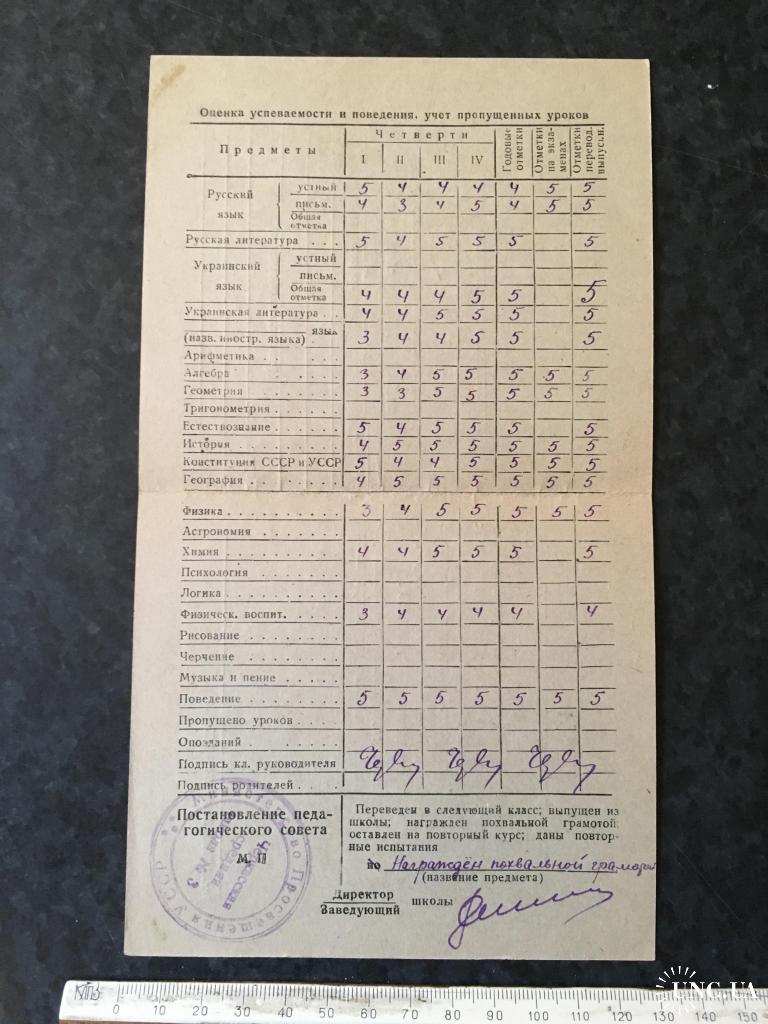 Оценка успеваемости и поведения, учет пропущенных уроков
Предметы
Четверти
I II III IV
Годовые отметки
Отметки на экзаменах
Отметки перевод. выпускн.
Русский язык
устный 5 4 4 4 4 5 5
письм. 4 3 4 5 4 5 5
Общая отметка
Русская литература . . . 5 4 5 5 5 5
Украинский язык
устный
письм.
Общая отметка 4 4 4 5 5 5
Украинская литература . . 4 4 5 5 5 5
язык
(назв. иностр. языка) . 3 4 4 5 5 5
Арифметика . . . . . .
Алгебра . . . . . . 3 4 5 5 5 5 5
Геометрия . . . . . . . 3 3 5 5 5 5 5
Тригонометрия . . . . . .
Естествознание . . . . . 5 4 5 5 5 5
История . . . . . . . . 4 5 5 5 5 5 5
Конституция СССР и УССР 5 4 4 5 5 5 5
География . . . . . . . 4 5 5 5 5 5 5
Физика . . . . . . . . . 3 4 5 5 5 5 5
Астрономия . . . . . . .
Химия . . . . . . . . . 4 4 5 5 5 5
Психология . . . . . . .
Логика . . . . . . . . .
Физическ. воспит. . . . . 3 4 4 4 4 4
Рисование . . . . . . .
Черчение . . . . . . .
Музыка и пение . . . . .
Поведение . . . . . . . 5 5 5 5 5 5 5
Пропущено уроков . . . .
Опозданий . . . . . . .
Подпись кл. руководителя
Подпись родителей . . . .
Постановление педа-
гогического совета
М. П
Министерство Просвещения УССР
Черкасская
средняя
школа № 3
Переведен в следующий класс; выпущен из
школы; награжден похвальной грамотой
оставлен на повторный курс; даны повтор-
ные испытания
по Награждён похвальной грамотой
(название предмета)
Директор
Заведующий школы
0 10 20 30 40 50 60 70 80 90 100 110 120 130 140 150
UNC.UA